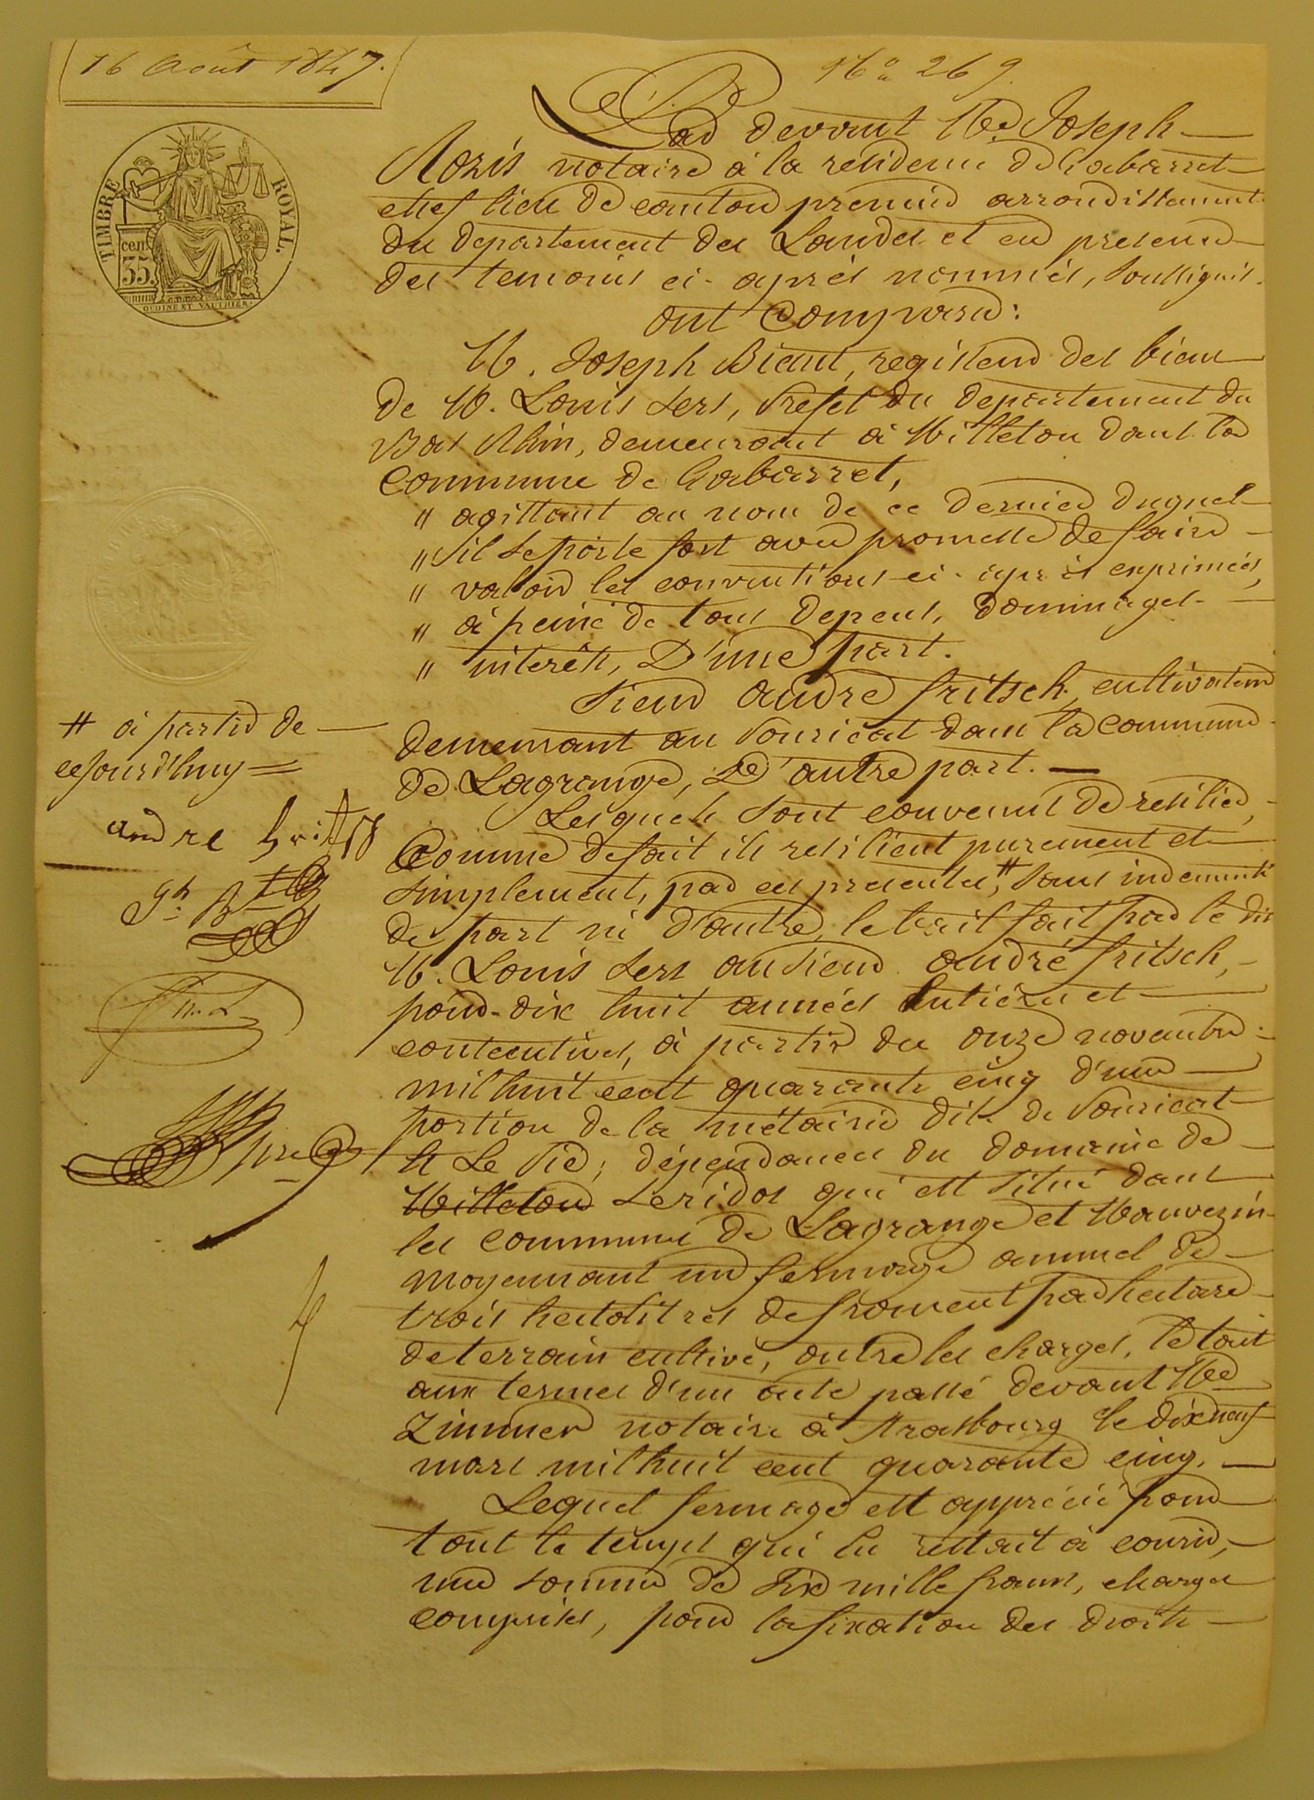 16 Août 1847.
No 269
TIMBRE ROYAL.
cen. 35.
OUDINÉ ET VAUTHIER
Par devant Me Joseph
notaire à la residence de Gabarret
chef lieu de canton premier arrondissement
du departement des Landes et en presence
des temoins ci-après nommés, soussignés.
ont Comparu:
M. Joseph Biant, regisseur des biens
de M. Louis Sers, Prefet du departement du
Bas Rhin, demeurant à Milleton dans la
Commune de Gabarret,
" agissant au nom de ce dernier duquel
" il se porte fort avec promesse de faire
" valoir les conventions ci-après exprimées,
" à peine de tous depens, dommages
" interêts, D'une part.
Sieur andré fritsch, cultivateur
demeurant au Souricat dans la Commune
de Lagrange, D'autre part.
Lesquels sont convenus de resilier,
Comme de fait ils resilient purement et
simplement, par ces presentes, # sans indemnité
de part ni d'autre, le bail fait par le dit
M. Louis Sers au sieur andré fritsch,
pour dix huit années entières et
consecutives, à partir du onze novembre
mil huit cent quarante cinq d'une
portion de la métairie dite de Souricat
et Le Pié, dépendances du domaine de
Milleton Seridos qui est situé dans
les communes de Lagrange et Mauvezin
moyennant un fermage annuel de
trois hectolitres de froment par hectare
de terrain cultivé, outre les charges, le tout
aux termes d'un acte passé devant Me
Zimmer notaire à Strasbourg le dix neuf
mars mil huit cent quarante cinq.
Lequel fermage est apprécié pour
tout le temps qui en restait à courir,
une somme de Six mille francs, charges
comprises, pour la fixation des droits
# à partir de
ce jourd'huy =
andre fritsch